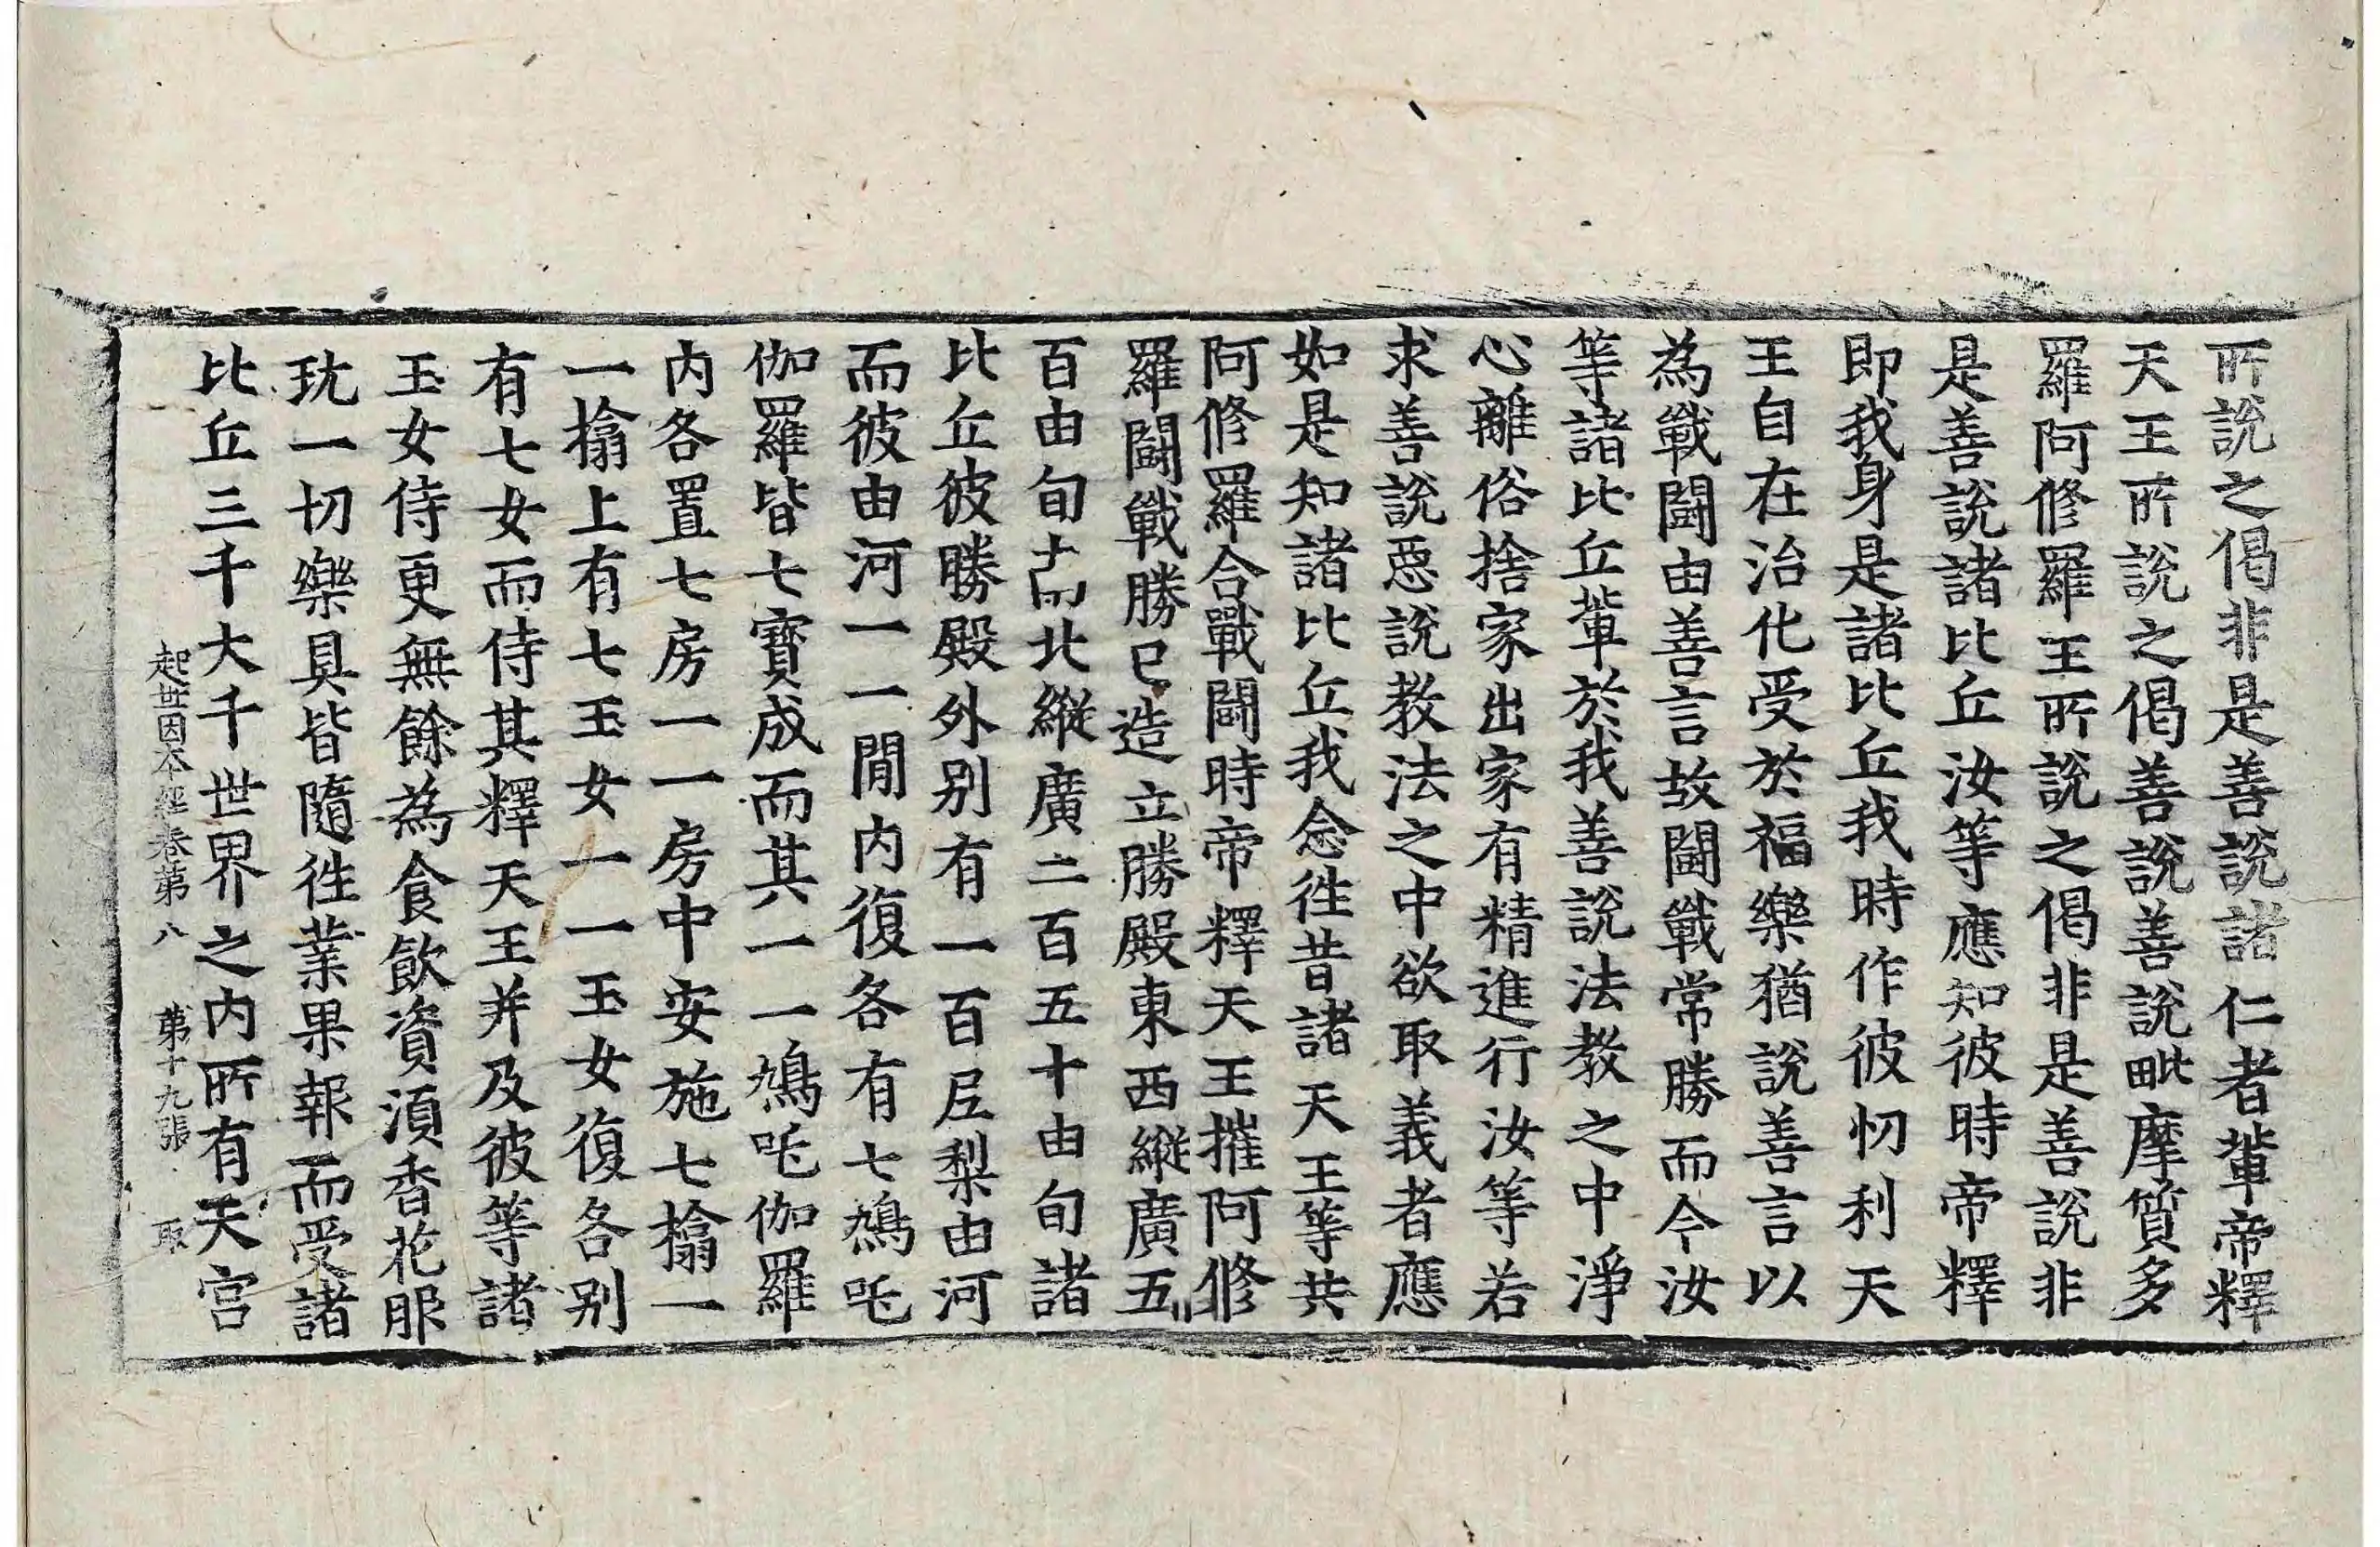 所說之偈非是善說諸仁者軰帝釋
天王所說之偈善說善說毗摩質多
羅阿修羅王所說之偈非是善說非
是善說諸比丘汝等應知彼時帝釋
即我身是諸比丘我時作彼忉利天
王自在治化受於福樂猶說善言以
為戰鬪由善言故鬪戰常勝而今汝
等諸比丘軰於我善說法教之中淨
心離俗捨家出家有精進行汝等若
求善說惡說教法之中欲取義者應
如是知諸比丘我念徃昔諸天王等共
阿修羅合戰鬪時帝釋天王摧阿修
羅鬪戰勝已造立勝殿東西縱廣五
百由旬南北縱廣二百五十由旬諸
比丘彼勝殿外別有一百尼梨由河
而彼由河一一閒內復各有七鳩吒
伽羅皆七寶成而其一一鳩吒伽羅
內各置七房一一房中安施七㩉一
一㩉上有七玉女一一玉女復各別
有七女而侍其釋天王并及彼等諸
玉女侍更無餘為食飲資湏香花服
玩一切樂具皆隨徃業果報而受諸
比丘三千大千世界之內所有天宮
起世因本經卷第八 第十九張 取